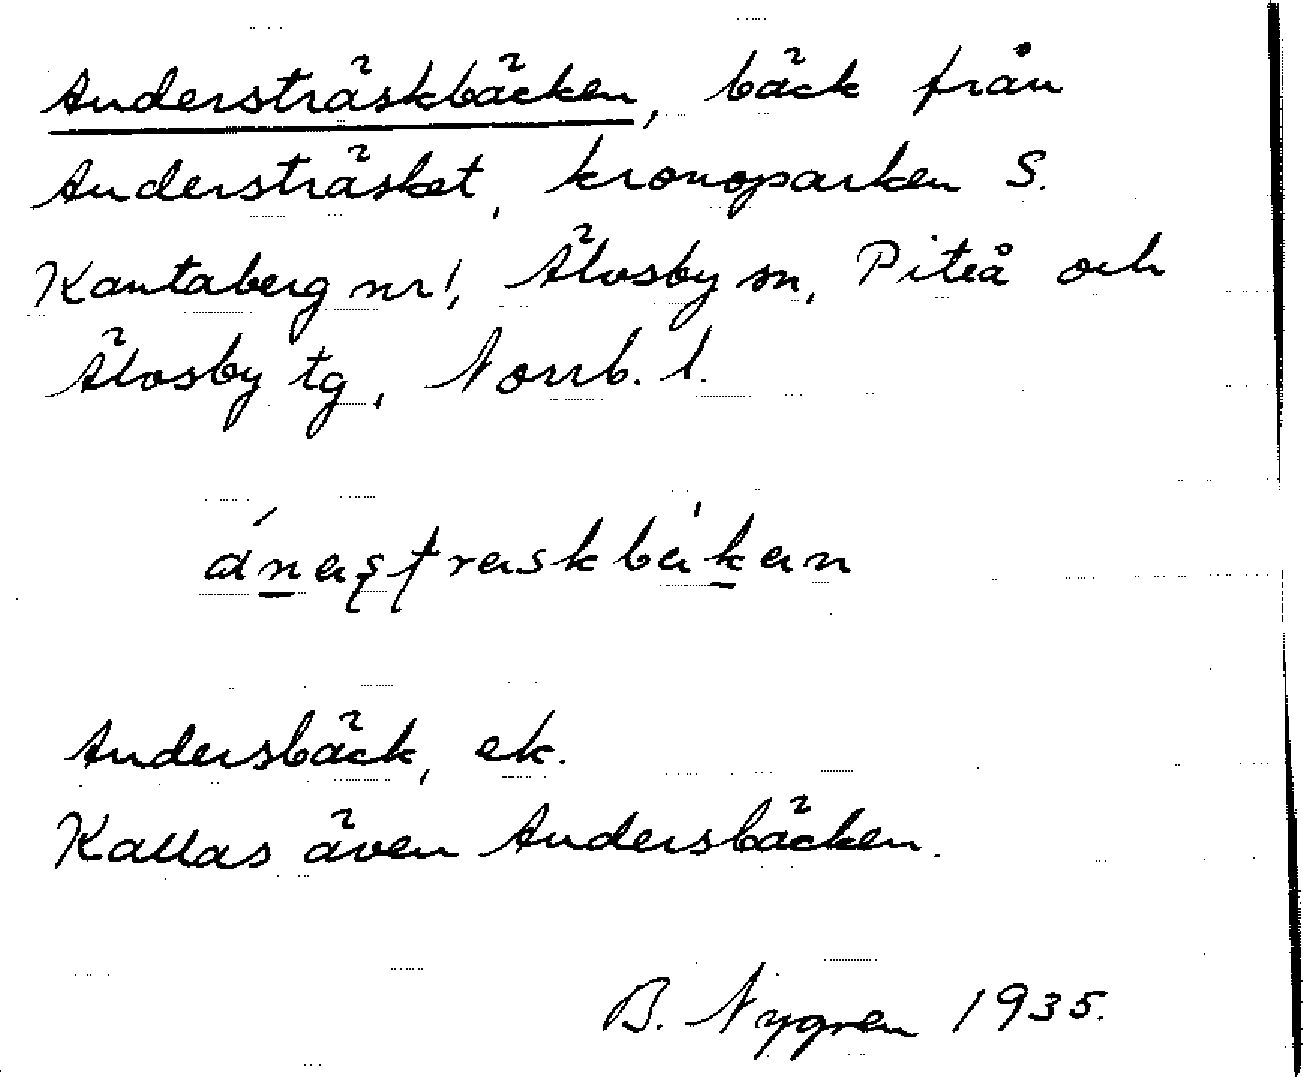 Andersträskbäcken, bäck från
Andersträsket, kronoparken S.
Kantaberg nr 1, Älvsby sn, Piteå och
Älvsby tg, Norrb. l.
Andersbäck, ek.
Kallas även Andersbäcken.
B. Nygren 1935.